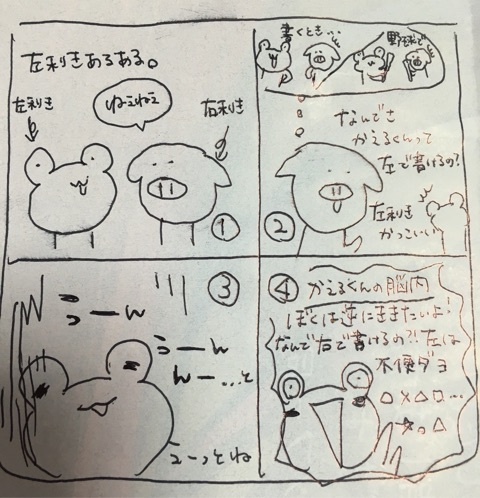 左利きあるある。
左利き
ねぇねぇ
右利き
①
書くとき…
野球で
なんでさ
かえるくんって
左で書けるの?
左利き
かっこいい
②
③
うーん
うーん
んー…と
えーっとね
④
かえるくんの脳内
ぼくは逆にききたいよ!
なんで右で書けるの?!左は
不便ダヨ
△×△□…
☆○△